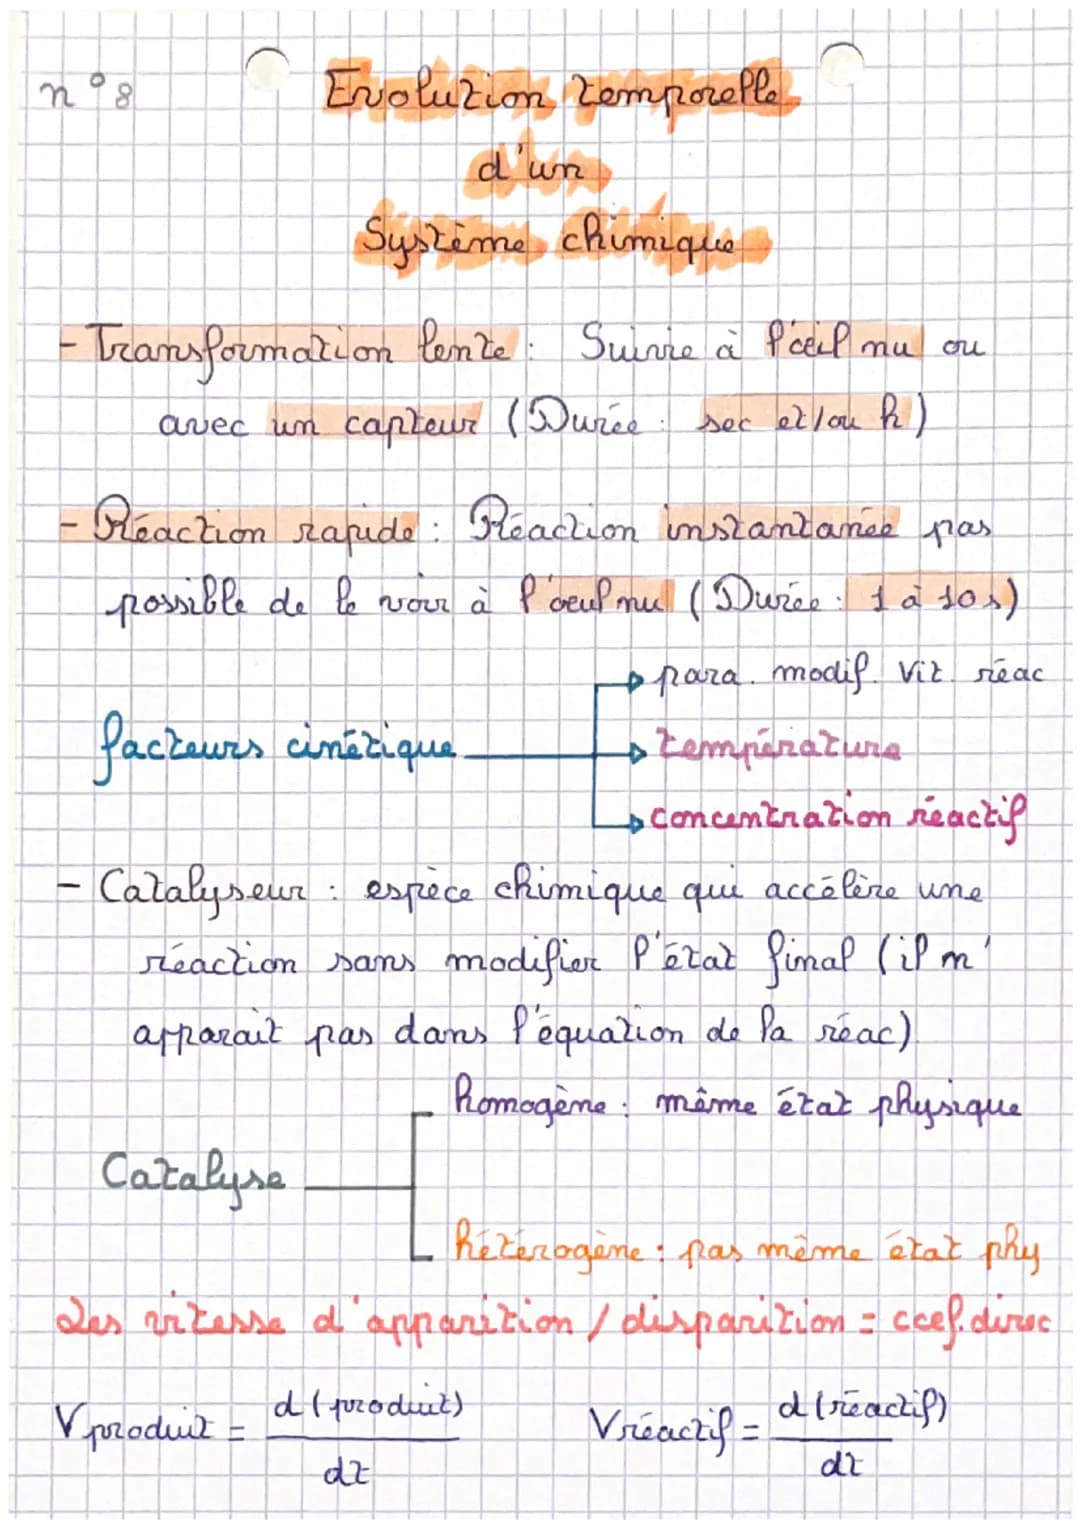 n°8
Evolution temporelle
d'un
Système chimique
- Transformation lente : Suivie à l'œil nu ou
avec un capteur (Durée : sec et/ou h)
- Réaction rapide : Réaction instantanée pas
possible de le voir à l'oeul nu (Durée : 1 à 10s)
para. modif. Vit. réac
facteurs cinétique
température
concentration réactif
- Catalyseur : espèce chimique qui accélère une
réaction sans modifier l'état final (il n'
apparait pas dans l'équation de la réac)
homogène : même état physique
Catalyse
hétérogène : pas même état phy
Les vitesse d'apparition / disparition = coef. direc
V produit = d(produit)
dt
V réactif = d(réactif)
dt